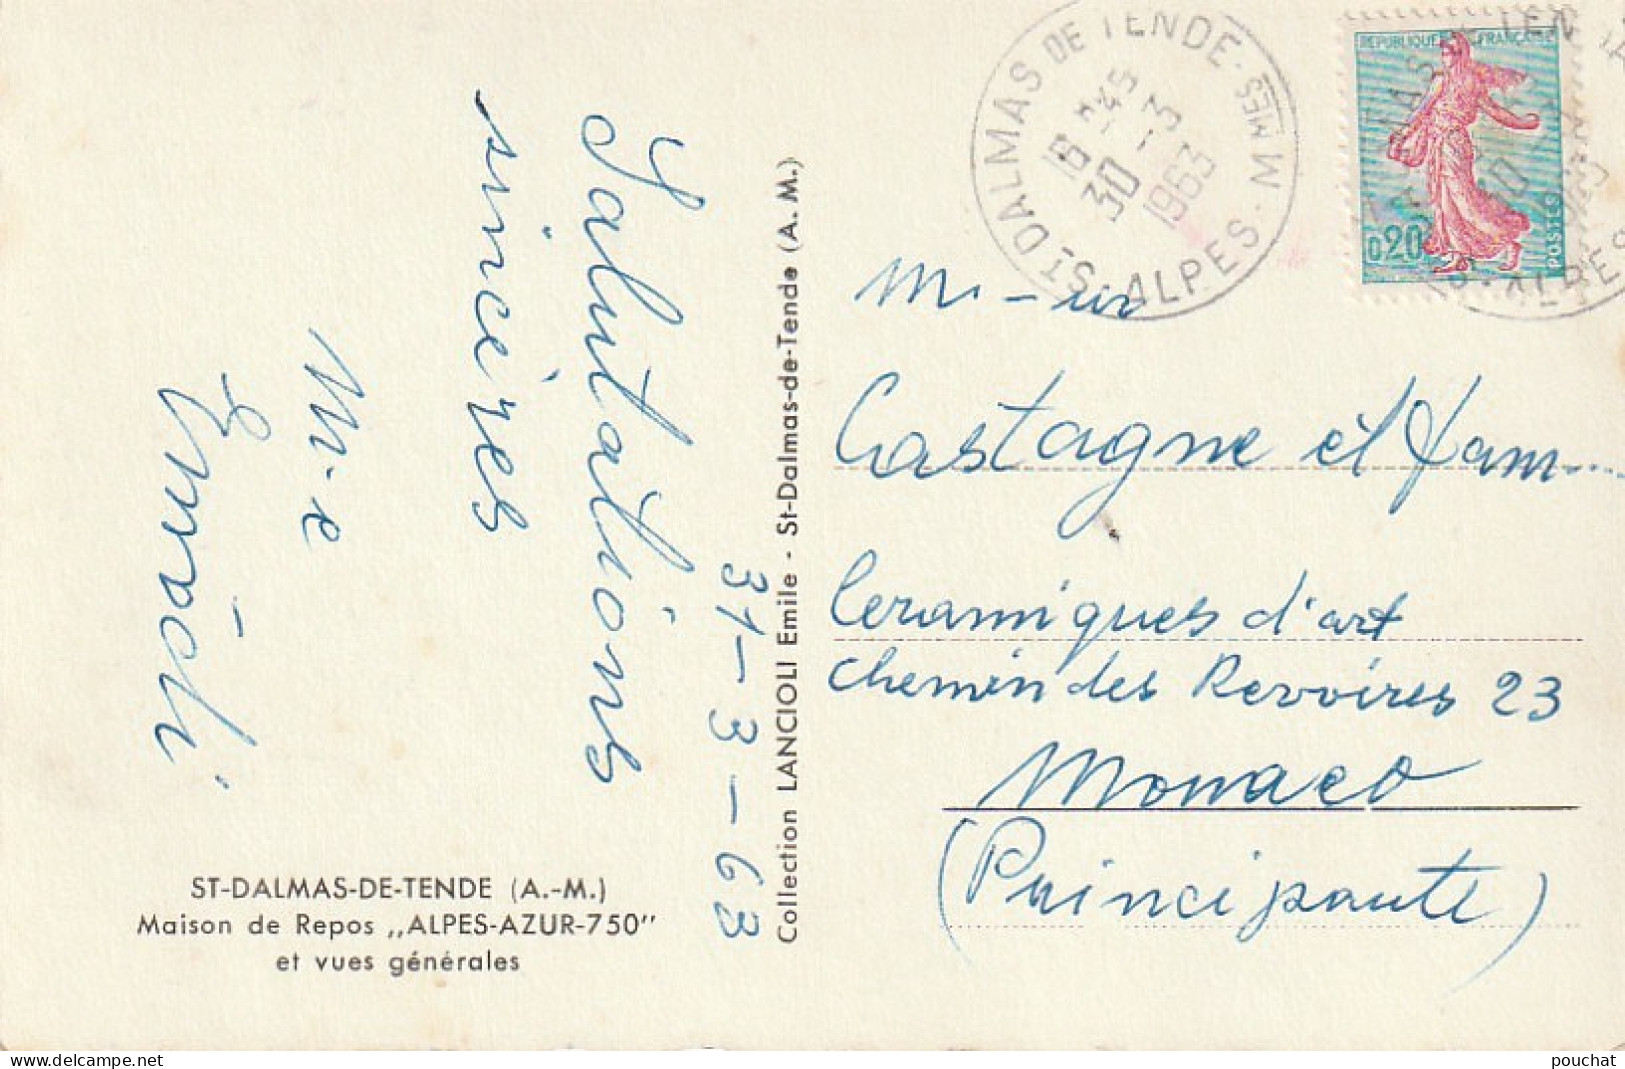 Salutations
sincères
M-e
31-3-63
ST-DALMAS-DE-TENDE (A.-M.)
Maison de Repos ,,ALPES-AZUR-750''
et vues générales
Collection LANCIOLI Emile - St-Dalmas-de-Tende (A. M.)
ST-DALMAS DE TENDE · ALPES · MMES
16 H45
30 - 3
1963
REPUBLIQUE FRANÇAISE
0,20
POSTES
M - ur
Castagne et fam...
Ceramiques d'art
chemin des Revoires 23
Monaco
(Principauté)
delcampe.net
pouchat